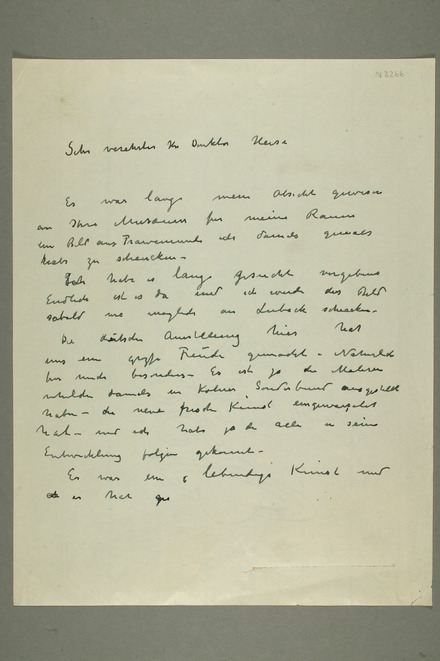 N 2266
Sehr verehrter Hr Direktor Heise
Es war lange mein Absicht gewesen
an Ihre Museum für meine Raum
ein Bild aus Travemünde ich damals gemalt
habe zu schencken –
Ich habe es lange gesucht vergebens
Endlich ist es da und ich werde das Bild
sobald wie möglich an Lübeck schecken –
Die deutsche Ausstellung hier hat
uns ein große Freude gemacht – Natürlich
für mich besonders – Es ist ja die Malerei
welche damals in Kölner Sonderbund ausgestellt
habe – die neue frische Kunst eingeweiht
hat – und ich habe ja die alle in seine
Entwicklung folgen gekonnt –
Es war ein lebendige Kunst und
es hat